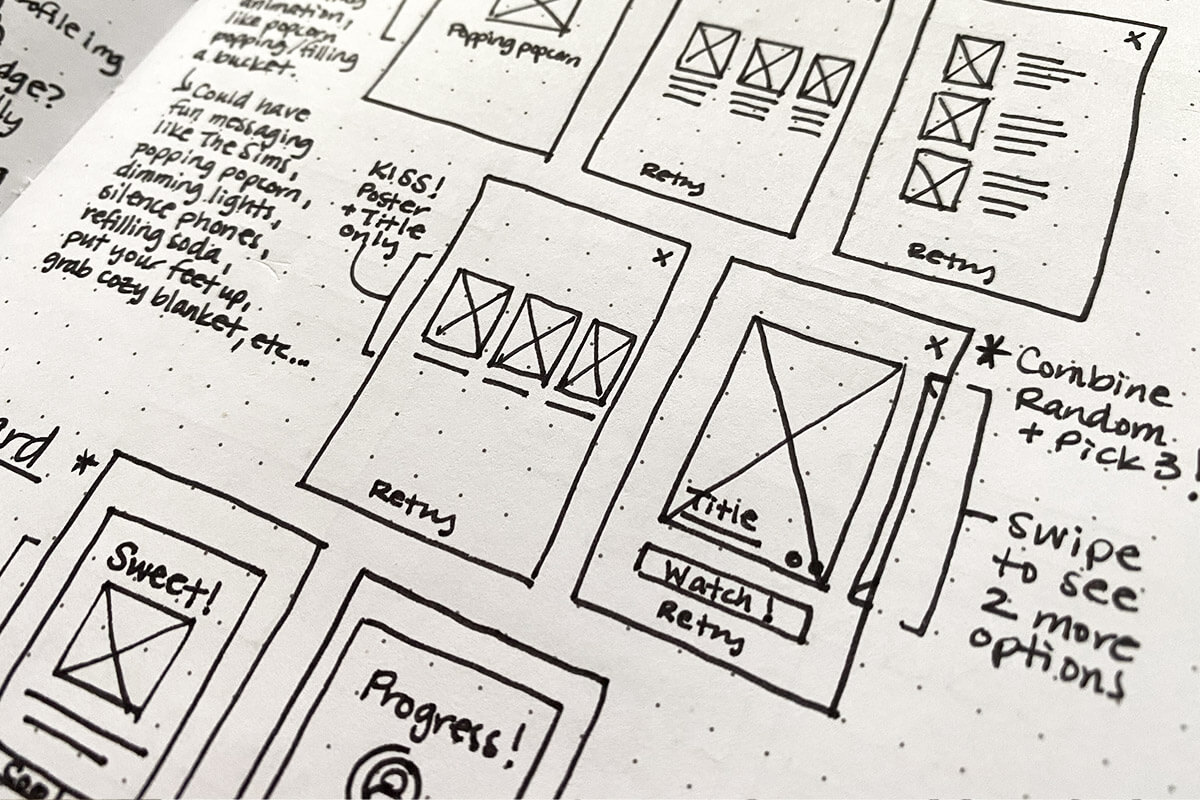 animation,
like popcorn
popping/filling
a bucket.
↳ Could have
fun messaging
like The Sims,
popping popcorn,
dimming lights,
silence phones,
refilling soda,
put your feet up,
grab cozy blanket, etc...
Popping popcorn
x
Retry
Retry
KISS!
Poster
+ Title
only
x
Retry
x
Title
Watch!
Retry
* Combine
Random
+ Pick 3!
Swipe
to see
2 more
options
*
Sweet!
Progress!